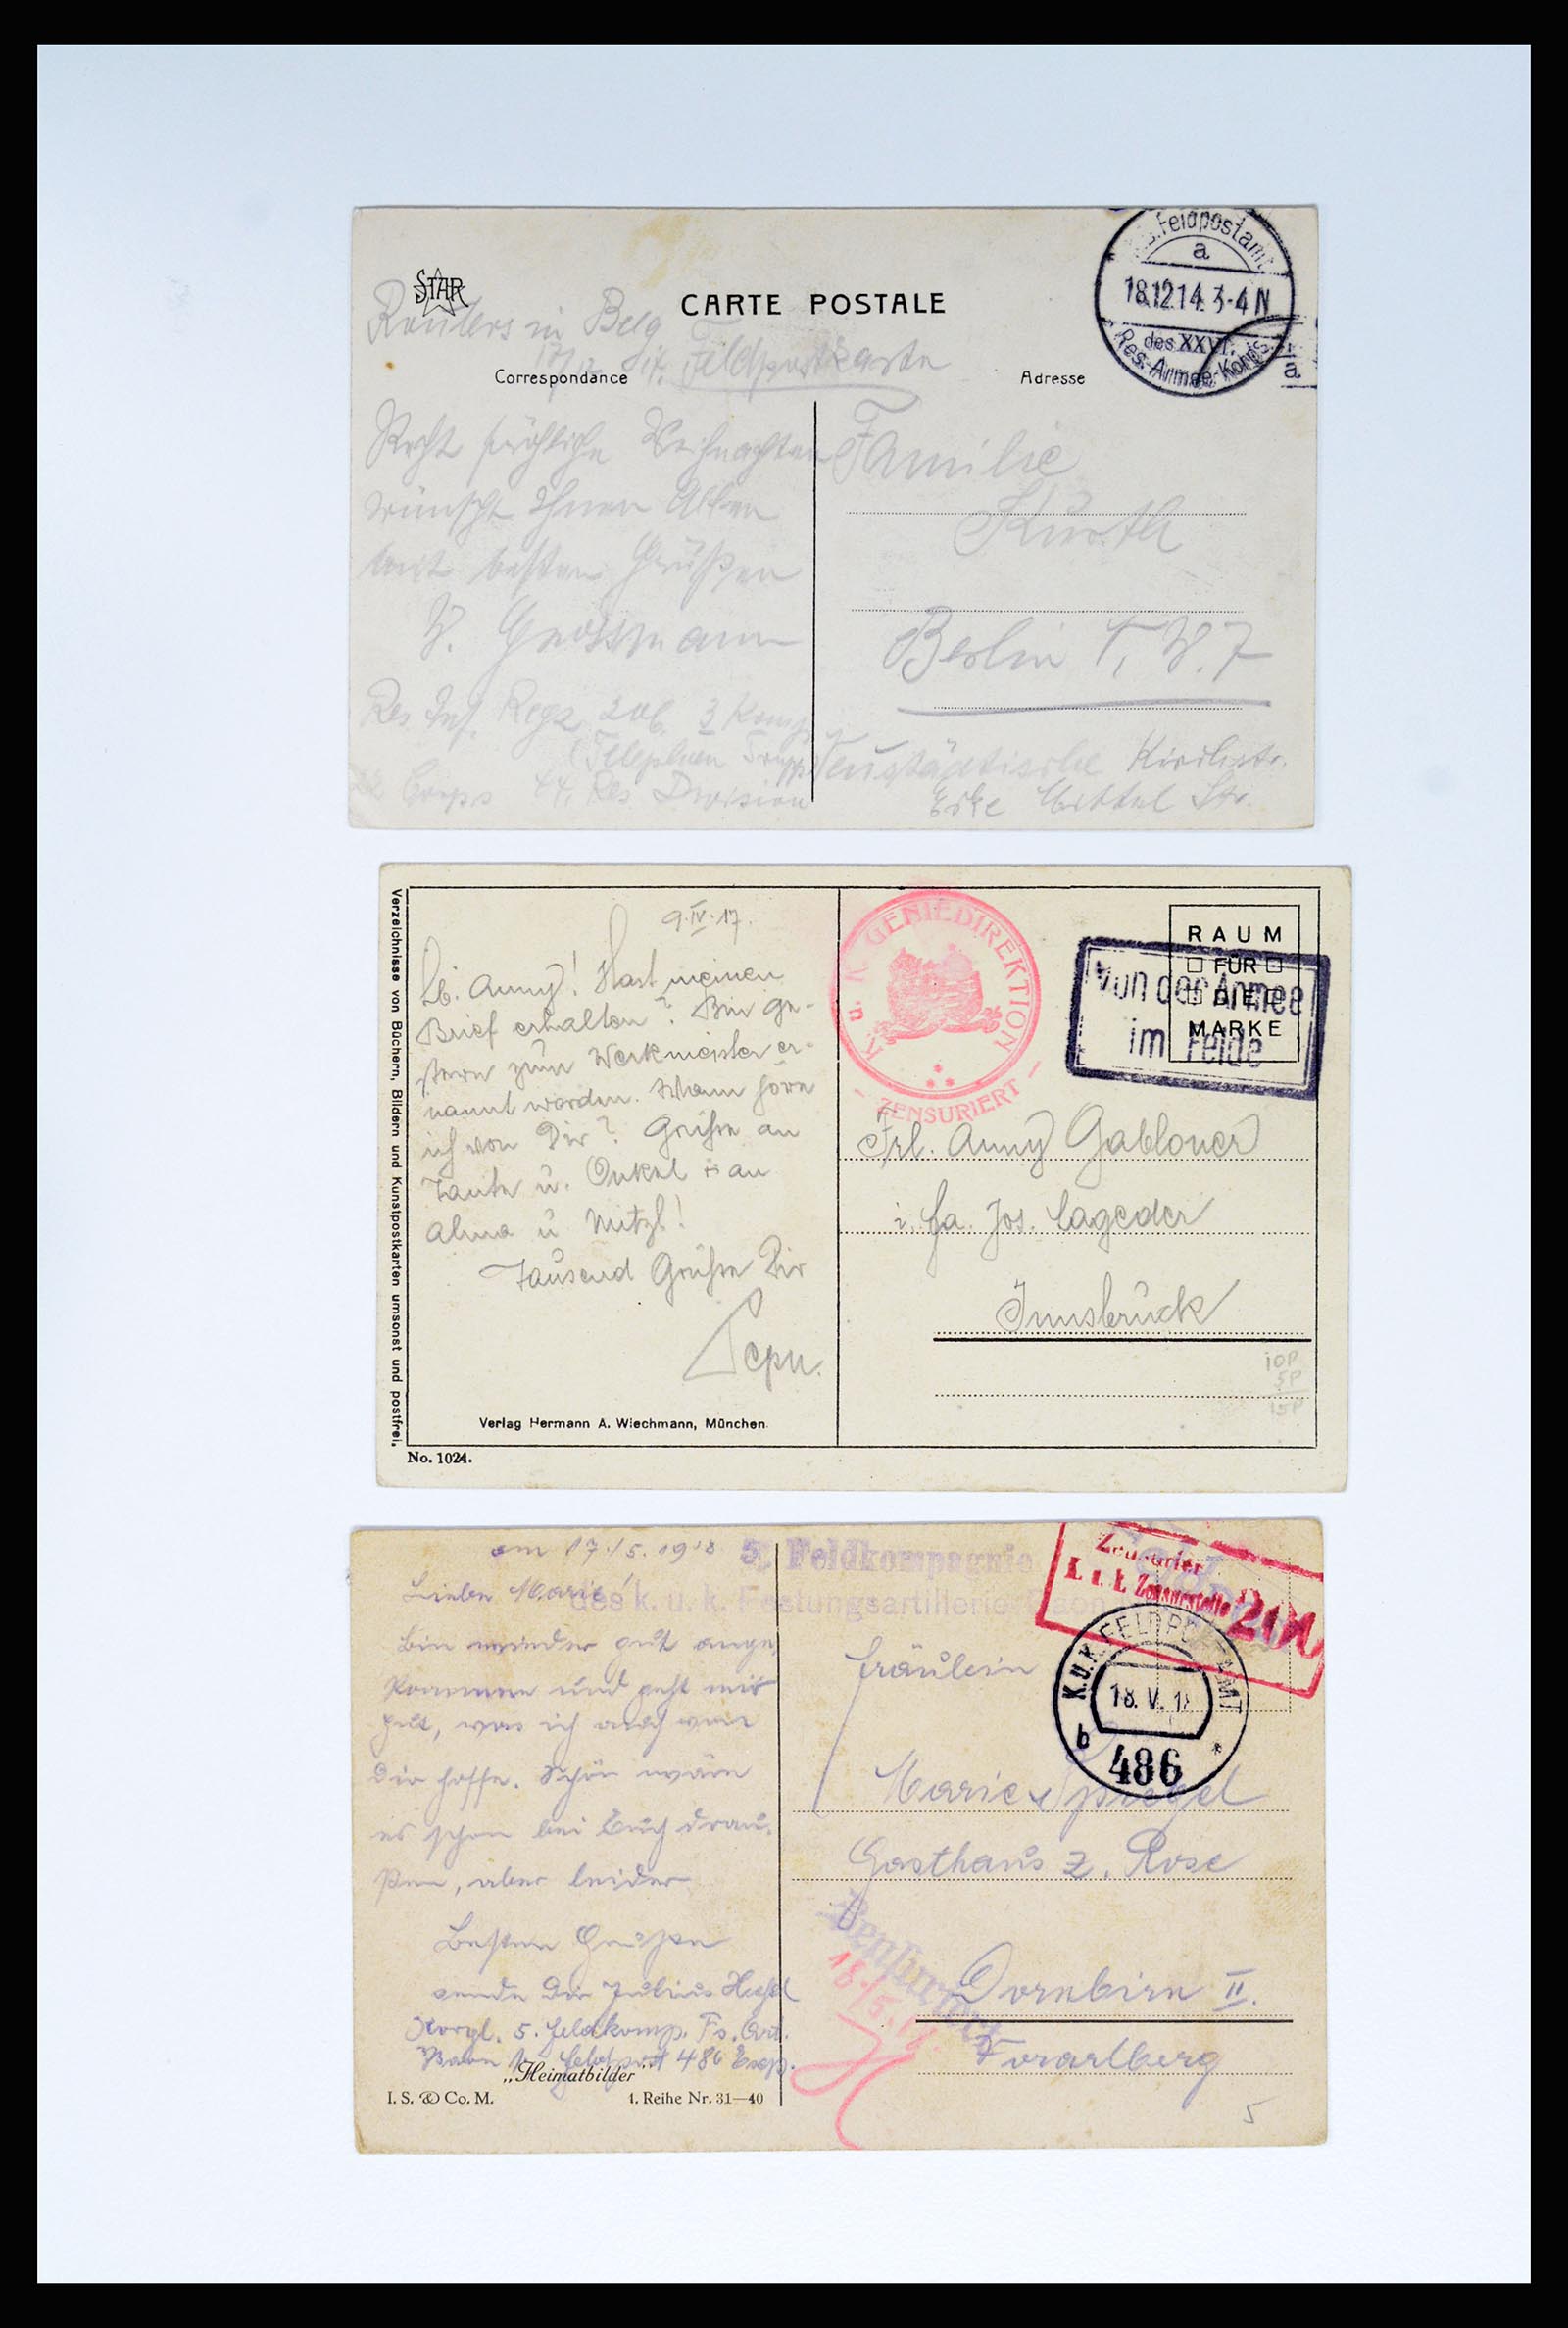 STAR
CARTE POSTALE
Roulers in Belg
Feldpostkarte
Correspondance
Adresse
Feldpostamt
a
18.12.14. 3-4 N
des XXVI.
Res.-Armee-Korps
a
Recht fröhliche Weihnachten
wünscht Ihnen Allen
mit besten Grüßen
W. Grossmann
Res. Inf. Reg. 206. 3 Komp.
(Telephon Trupp
Corps 44. Res. Division
Familie
Kürth
Berlin W. 7
Neustädtische Kirchstr.
Ecke Mittel Str.
Verzeichnisse von Büchern, Bildern und Kunstpostkarten umsonst und postfrei.
9.IV.17.
Lb. Anny! Hast meinen
Brief erhalten? Bin ge-
stern zum Werkmeister er-
nannt worden. Wann höre
ich von Dir? Grüße an
Tante u. Onkel an
Alma u Mitzl!
Tausend Grüße Dir
Sepn.
Verlag Hermann A. Wiechmann, München
No. 1024.
K. u. K. GENIEDIREKTION
ZENSURIERT
RAUM
FÜR
DIE
MARKE
Von der Armee
im Felde
Frl. Anny Gabloner
i. Fa. Jos. Lageder
Innsbruck
10P
5P
15P
am 17./5. 1918
5. Feldkompagnie
des k. u. k. Festungsartillerie
Liebe Marie!
Bin wieder gut ange
kommen und geht mir
gut, was ich auch von
Dir hoffe. Schön wäre
es schon bei Euch drau-
ßen, aber leider
Besten Grüße
sende Dir Julius
5. Feldkomp. Fs. Art.
Baon Feldpost 486
„Heimatbilder“
I. S. & Co. M.
1. Reihe Nr. 31—40
Zensuriert
k. u. k. Zensurstelle
K.U.K. FELDPOSTAMT
18. V. 18
b
486
Fräulein
Marie Spiegel
Gasthaus z. Rose
Zensuriert
18./5.
Dornbirn II.
Vorarlberg
5